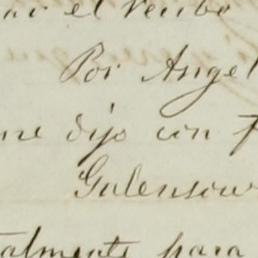 ar el recibo
Por Angel
me dijo con
Galensow
talmente para